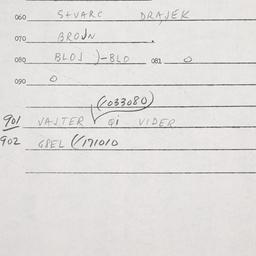 060 STVARC DRAJEK
070 BROJN
080 BLOJ )-BLO 081 0
090 0
(1033080)
901 VAJTER QI VIDER
902 GREL (1171010